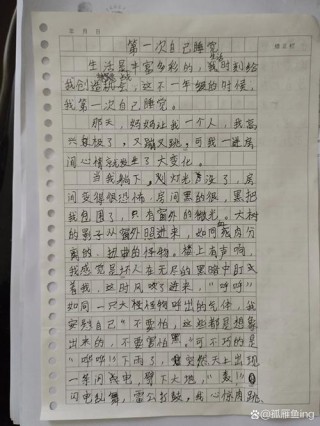 年 月 日
第一次自己睡觉
生活是丰富多彩的，时刻给
我创造机会，这不一年级的时候，
我第一次自己睡觉。
那天，妈妈让我一个人，我高
兴极了，又蹦又跳，可我一进房
间心情就发生了大变化。
当我躺下，灯光灭了，房
间变得很恐怖，房间黑的很，黑把
我包围了，只有窗外的微光。大树
的影子从窗外照进来，如同有分
离的，扭曲的怪物。楼上有声响，
我感觉是坏人在无尽的黑暗中盯
着我，这时风吹了进来，“呼呼”
如同一只大怪物呼出的气体，我
安慰自己“不要怕，这些都是想象
出来的，不要害怕”可不巧的是
“哗哗”下雨了，突然天上出现
一车闪电，劈下大地，“轰”
闪电乱舞，雷公打鼓，我心惊肉跳，
@孤雁鱼ing